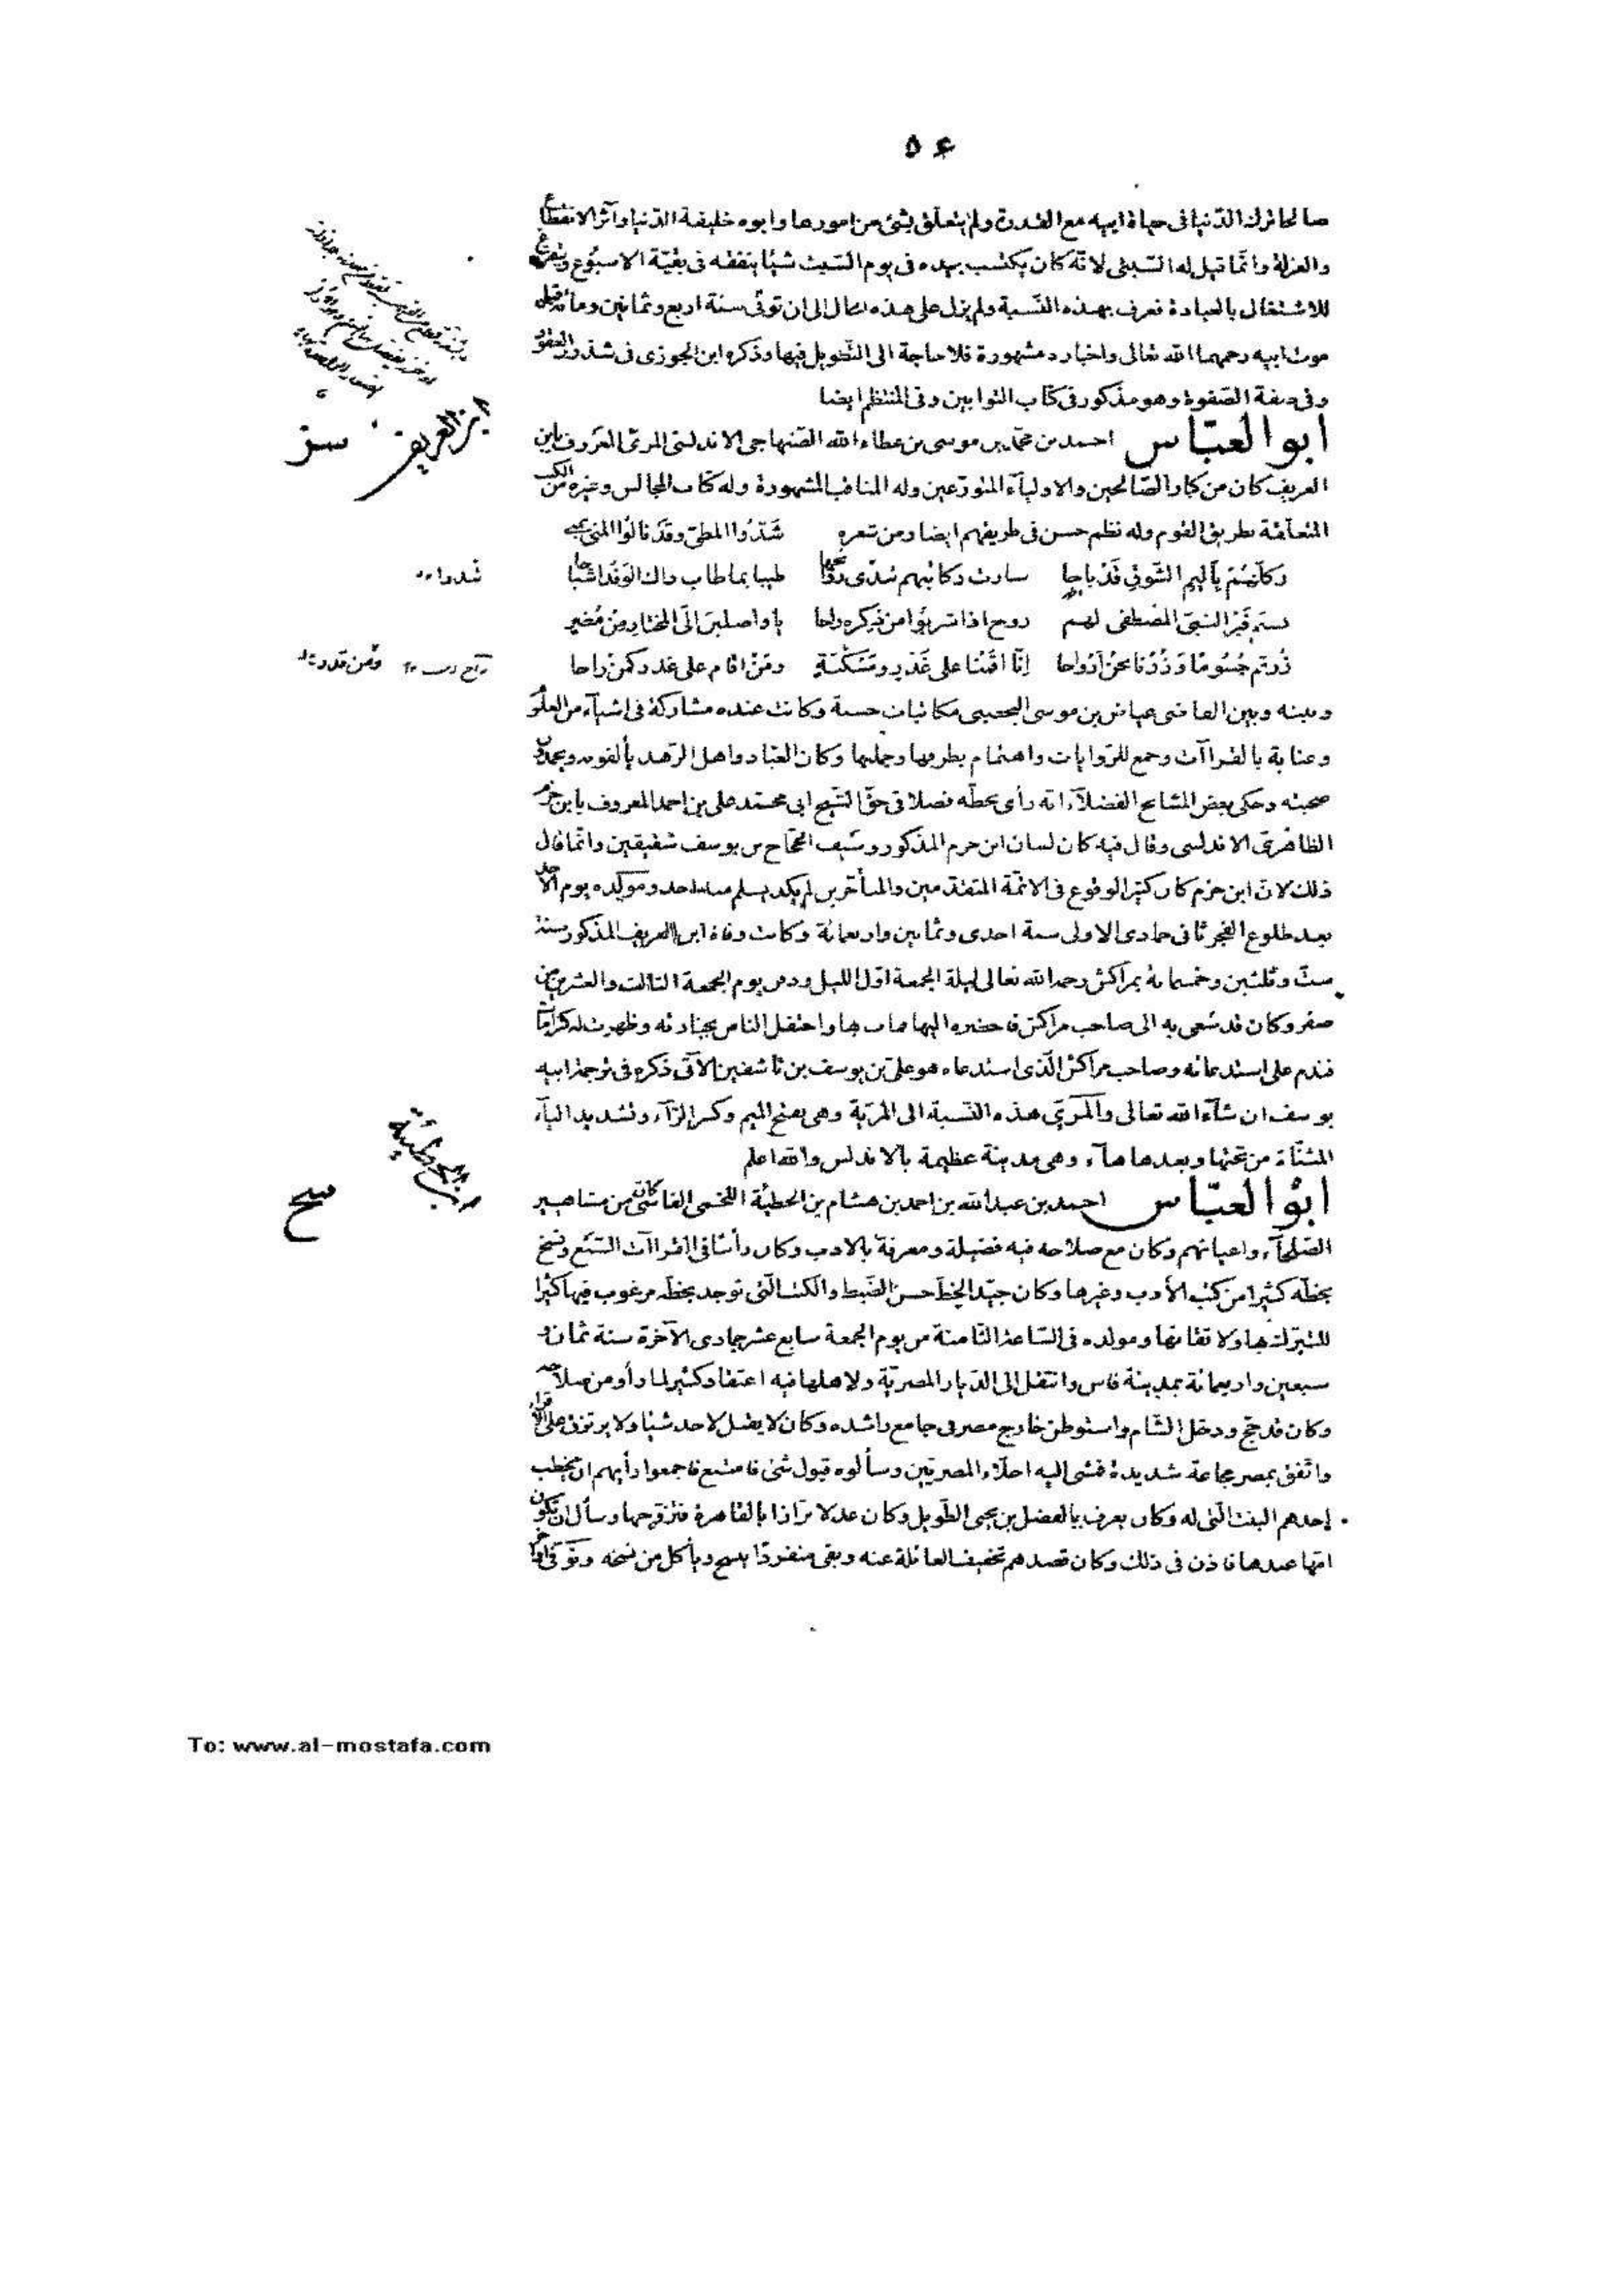 ٥٤
صالحا ترك الدّنيا فى حياة ابيه مع القدرة ولم يتعلّق بشئ من امورها وابوه خليفة الدّنيا وآثر الانقطاع
والعزلة وانّما قيل له السّبتى لانّه كان يكتسب بيده فى يوم السّبت شيئا ينفقه فى بقيّة الاسبوع ويتفرّغ
للاشتغال بالعبادة فعرف بهذه النّسبة ولم يزل على هذه الحال الى ان توفّى سنة اربع وثمانين ومائة قبل
موت ابيه رحمهما الله تعالى واخباره مشهورة فلا حاجة الى التّطويل فيها وذكره ابن الجوزى فى شذور العقود
وفى صفة الصّفوة وهو مذكور فى كتاب التوابين وفى المنتظم ايضا
ابو العبّاس احمد بن محمّد بن موسى بن عطاء الله الصّنهاجى الاندلسىّ المرىّ المعروف بابن
العريف كان من كبار الصّالحين والاوليآء المتورّعين وله المناقب المشهورة وله كتاب المجالس وغيره من الكتب
المتعلّقة بطريق القوم وله نظم حسن فى طريقهم ايضا ومن شعره شَدُّوا المطىّ وقَد نالُوا المنى بمنى
وكلّهم بِأَليمِ الشّوقِ قَدْ باحا سارت ركائبهم تندى روَائحها طيبا بما طاب ذاك الوَفد اشباحا
نسيم قَبر النبىّ المصْطفى لهم روح اذا شربُوا من ذِكره راحا يا واصلينَ الَى المختارِ مِنْ مُضَرٍ
زُرتم جُسُومًا وَزُرْنا نحنُ اَرْواحا اِنّا اقَمْنا على عُذْرٍ وعن قدر ومَنْ اقام على عذر كمن راحا
شدوا
وعن قدر
وبينه وبين القاضى عياض بن موسى اليحصبى مكاتبات حسنة وكانت عنده مشاركة فى اشيآء من العلُوم
وعناية بالقراآت وجمع للرّوايات واهتمام بطرقها وحملتها وكان العبّاد واهل الزهد يألفونه ويحمدون
صحبته وحكى بعض المشايخ الفضلآء انه رأى بخطّه فصلا فى حقّ الشّيخ ابى محمّد على بن احمد المعروف بابن حزم
الظاهرىّ الاندلسى وقال فيه كان لسان ابن حزم المذكور وسيف الحجّاج بن يوسف شقيقين وانّما قال
ذلك لانّ ابن حزم كان كثير الوقوع فى الائمّة المتقدّمين والمتأخّرين لم يكد يسلم منه احد ومولده يوم الاحد
بعد طلوع الفجر ثانى جمادى الاولى سنة احدى وثمانين واربعمائة وكانت وفاة ابن العريف المذكور سنة
ستّ وثلثين وخمسمائة بمراكش رحمه الله تعالى ليلة الجمعة اوّل الليل ودفن يوم الجمعة الثالث والعشرين من
صفر وكان قد سُعى به الى صاحب مراكش فاحضره اليها فمات بها واحتفل النّاس بجنازته وظهرت له كرامات
فندم على استدعائه وصاحب مراكش الّذى استدعاه هو علىّ بن يوسف بن تاشفين الآتى ذكره فى ترجمة ابيه
يوسف ان شآء الله تعالى والمَرِىّ هذه النّسبة الى المريّة وهى بفتح الميم وكسر الرّآء وتشديد اليآء
المثنّاة من تحتها وبعدها هآء وهى مدينة عظيمة بالاندلس والله اعلم
ابُو العبّاس احمد بن عبد الله بن احمد بن هشام بن الحطيئة اللّخمى الفاسىّ كان من مشاهير
الصّلحآء واعيانهم وكان مع صلاحه فيه فضيلة ومعرفة بالادب وكان رأسا فى القراآت السّبع ونسخ
بخطّه كثيرا من كتب الأدب وغيرها وكان جيّد الخطّ حسن الضّبط والكتب الّتى توجد بخطّه مرغوب فيها كثيرا
للتبرّك بها ولاتقانها ومولده فى السّاعة الثّامنة من يوم الجمعة سابع عشر جمادى الآخرة سنة ثمان و
سبعين واربعمائة بمدينة فاس وانتقل الى الدّيار المصريّة ولاهلها فيه اعتقاد كثير لما رأو من صلاحه
وكان قد حجّ ودخل الشّام واستوطن خارج مصر فى جامع راشده وكان لا يقبل لاحد شيئا ولا يرتزق على الاقراء
واتّفق بمصر مجاعة شديدة فمشى اليه اجلّاء المصريّين وسألوه قبول شئ فامتنع فاجمعوا رأيهم ان يخطب
احدهم البنت الّتى له وكان يعرف بالفضل بن يحيى الطّويل وكان عدلا بزّازا بالقاهرة فتزوّجها وسأل ان تكون
امّها عندها فاذن فى ذلك وكان قصدهم تخفيف العائلة عنه وبقى منفردًا ينسخ ويأكل من نسخه وتوفّى اواخر
ابن العريف
سز
ابن الحطيئة
سح
To: www.al-mostafa.com